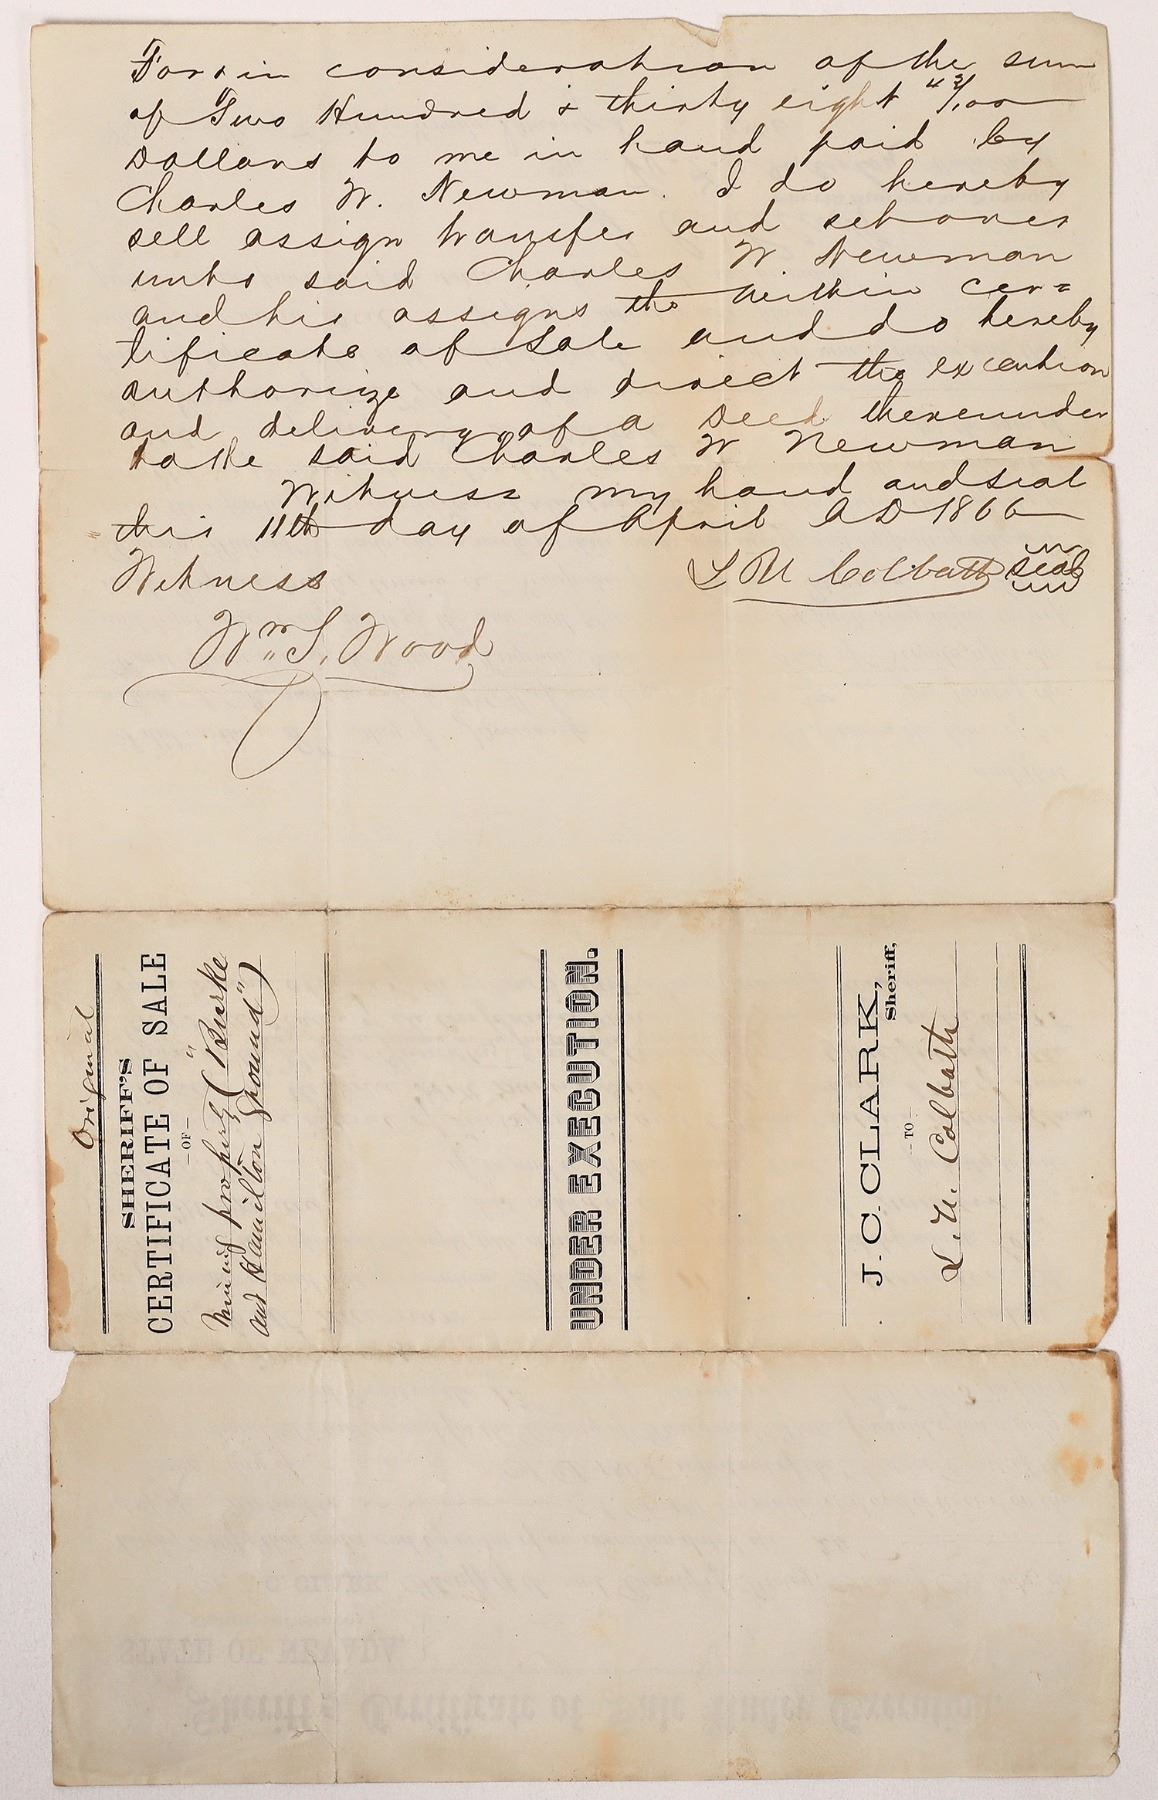 For & in consideration of the sum
of Two Hundred & thirty eight 42/100
Dollars to me in hand paid by
Charles W. Newman. I do hereby
sell assign transfer and set over
unto said Charles W Newman
and his assigns the within cer=
tificate of Sale and do hereby
authorize and direct the execution
and delivery of a Deed thereunder
to the said Charles W Newman
Witness my hand and seal
this 11th day of April AD 1866
Witness
L U Colbath seal
Wm. S. Wood
Original
SHERIFF'S
CERTIFICATE OF SALE
—OF—
Mining property ("Burke
and Hamilton Ground")
UNDER EXECUTION.
J. C. CLARK,
Sheriff,
—TO—
L. U. Colbath
STATE OF NEVADA
Sheriff's Certificate of Sale Under Execution.